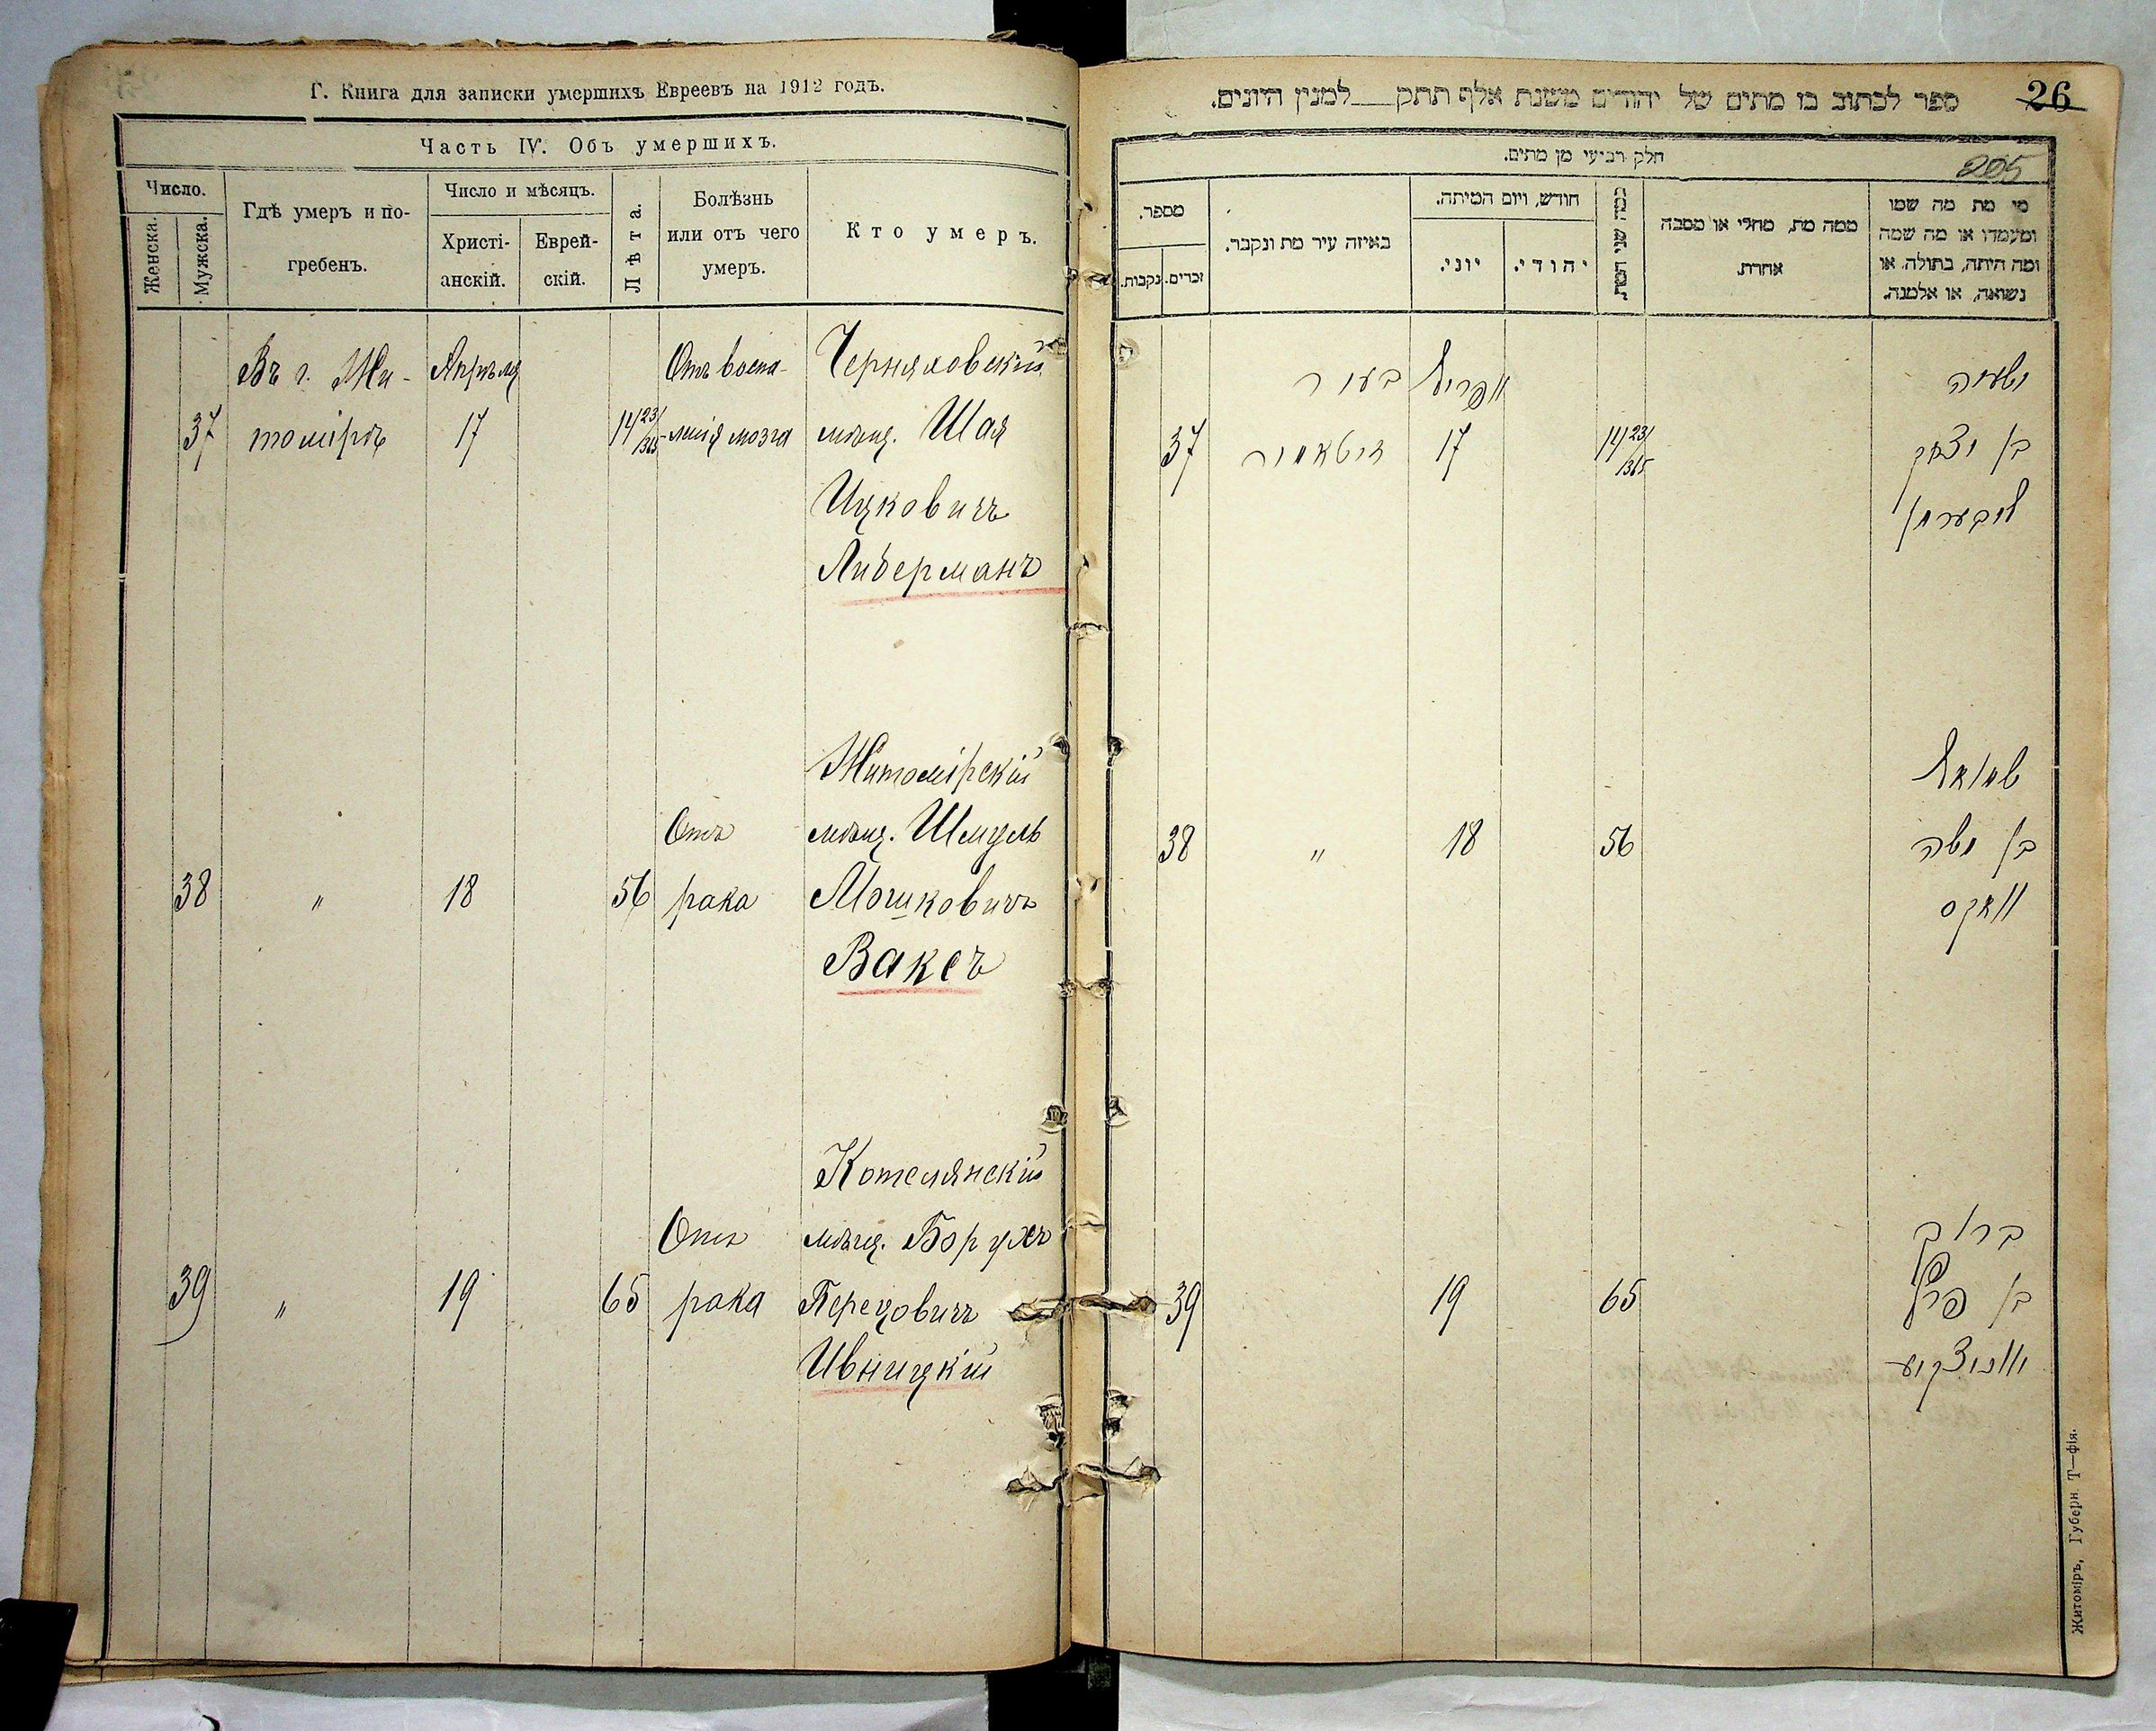 Г. Книга для записки умершихъ Евреевъ на 1912 годъ.
Часть IV. Объ умершихъ.
Число.
Женска.
Мужска.
Гдѣ умеръ и по-
гребенъ.
Число и мѣсяцъ.
Христі-
анскій.
Еврей-
скій.
Лѣта.
Болѣзнь
или отъ чего
умеръ.
Кто умеръ.
Въ г. Жи- Апрѣля Отъ воспа- Черняховскій
37 томірѣ 17 14 23/365 ленія мозга мѣщ. Шая
Ицковичъ
Либерманъ
Житомірскій
Отъ мѣщ. Шмуль
38 " 18 56 рака Мошковичъ
Ваксъ
Котелянскій
Отъ мѣщ. Борухъ
39 " 19 65 рака Перецовичъ
Ивницкій
ספר לכתוב בו מתים של יהודים משנת אלף תתק למנין היונים.
26
205
חלק רביעי מן מתים.
מי מת מה שמו
ומעמדו או מה שמה
ומה היתה, בתולה או
נשואה, או אלמנה.
ממה מת, מחלי או מסבה
אחרת.
כמה שני המת
חודש, ויום המיתה.
יהודי.
יוני.
באיזה עיר מת ונקבר.
מספר.
זכרים.
נקבות.
ישעיה אפריל בעיר
בן יצחק 14 23/365 17 זיטאמיר 37
ליבערמאן
שמואל
בן משה 56 18 " 38
וואקס
ברוך
בן פרץ 65 19 39
איווניצקיע
Житоміръ, Губерн. Т—фія.